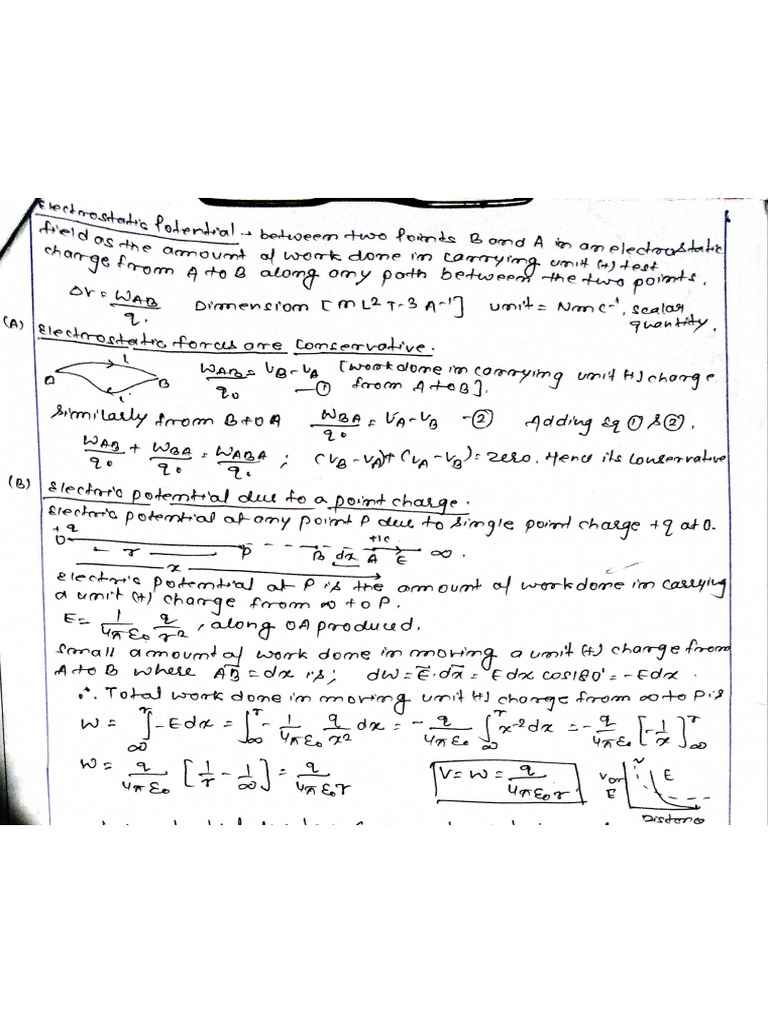 Electrostatic Potential → between two Points B and A in an electrostatic
field as the amount of work done in carrying unit (+) test
charge from A to B along any path between the two points.
ΔV = W_AB / q₀ Dimension [M L² T-3 A-1] unit = Nmc⁻¹, scalar quantity.
(A) Electrostatic forces are conservative.
W_AB / q₀ = V_B - V_A — ① [Workdone in carrying unit (+) charge from A to B].
Similarly from B to A W_BA / q₀ = V_A - V_B - ② Adding Eq ① & ②.
W_AB / q₀ + W_BA / q₀ = W_ABA / q₀ ; (V_B - V_A) + (V_A - V_B) = zero. Hence its conservative
(B) Electric potential due to a point charge.
Electric potential at any point P due to single point charge +q at O.
+q +1c
O r P B dx A E ∞.
x
Electric potential at P is the amount of workdone in carrying
a unit (+) charge from ∞ to P.
E = 1/4πε₀ q/r², along OA produced.
Small amount of work done in moving a unit (+) charge from
A to B where AB = dx is; dW = E⃗.dx⃗ = E dx cos180° = -Edx.
∴ Total work done in moving unit (+) charge from ∞ to P is
W = ∫_∞^r -Edx = ∫_∞^r - 1/4πε₀ q/x² dx = - q/4πε₀ ∫_∞^r x-2 dx = - q/4πε₀ [-1/x]_∞^r
W = q/4πε₀ [1/r - 1/∞] = q/4πε₀r V = W = q/4πε₀r. V or E E
Distance